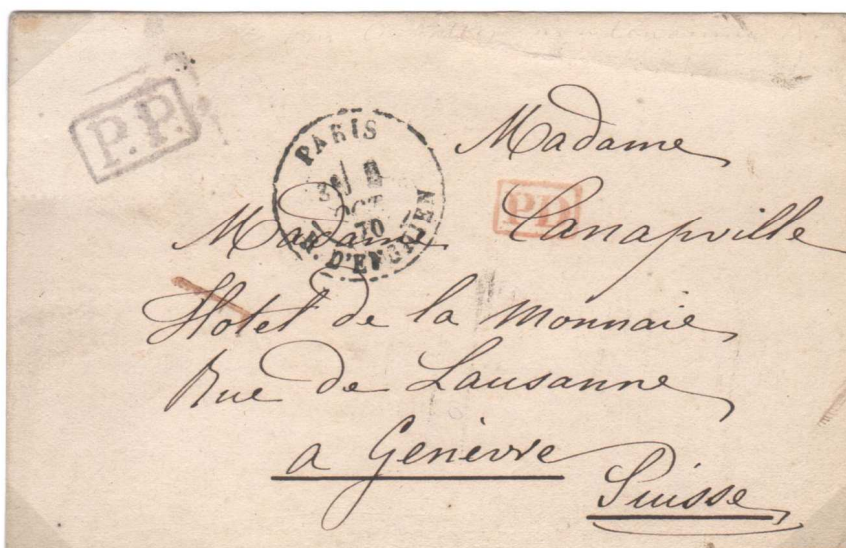 P.P.
PARIS
3E/
OCT.
70
R. D'ENGHIEN
PD
Madame
Madame Canapville
Hotel de la Monnaie
Rue de Lausanne
a Genève
Suisse